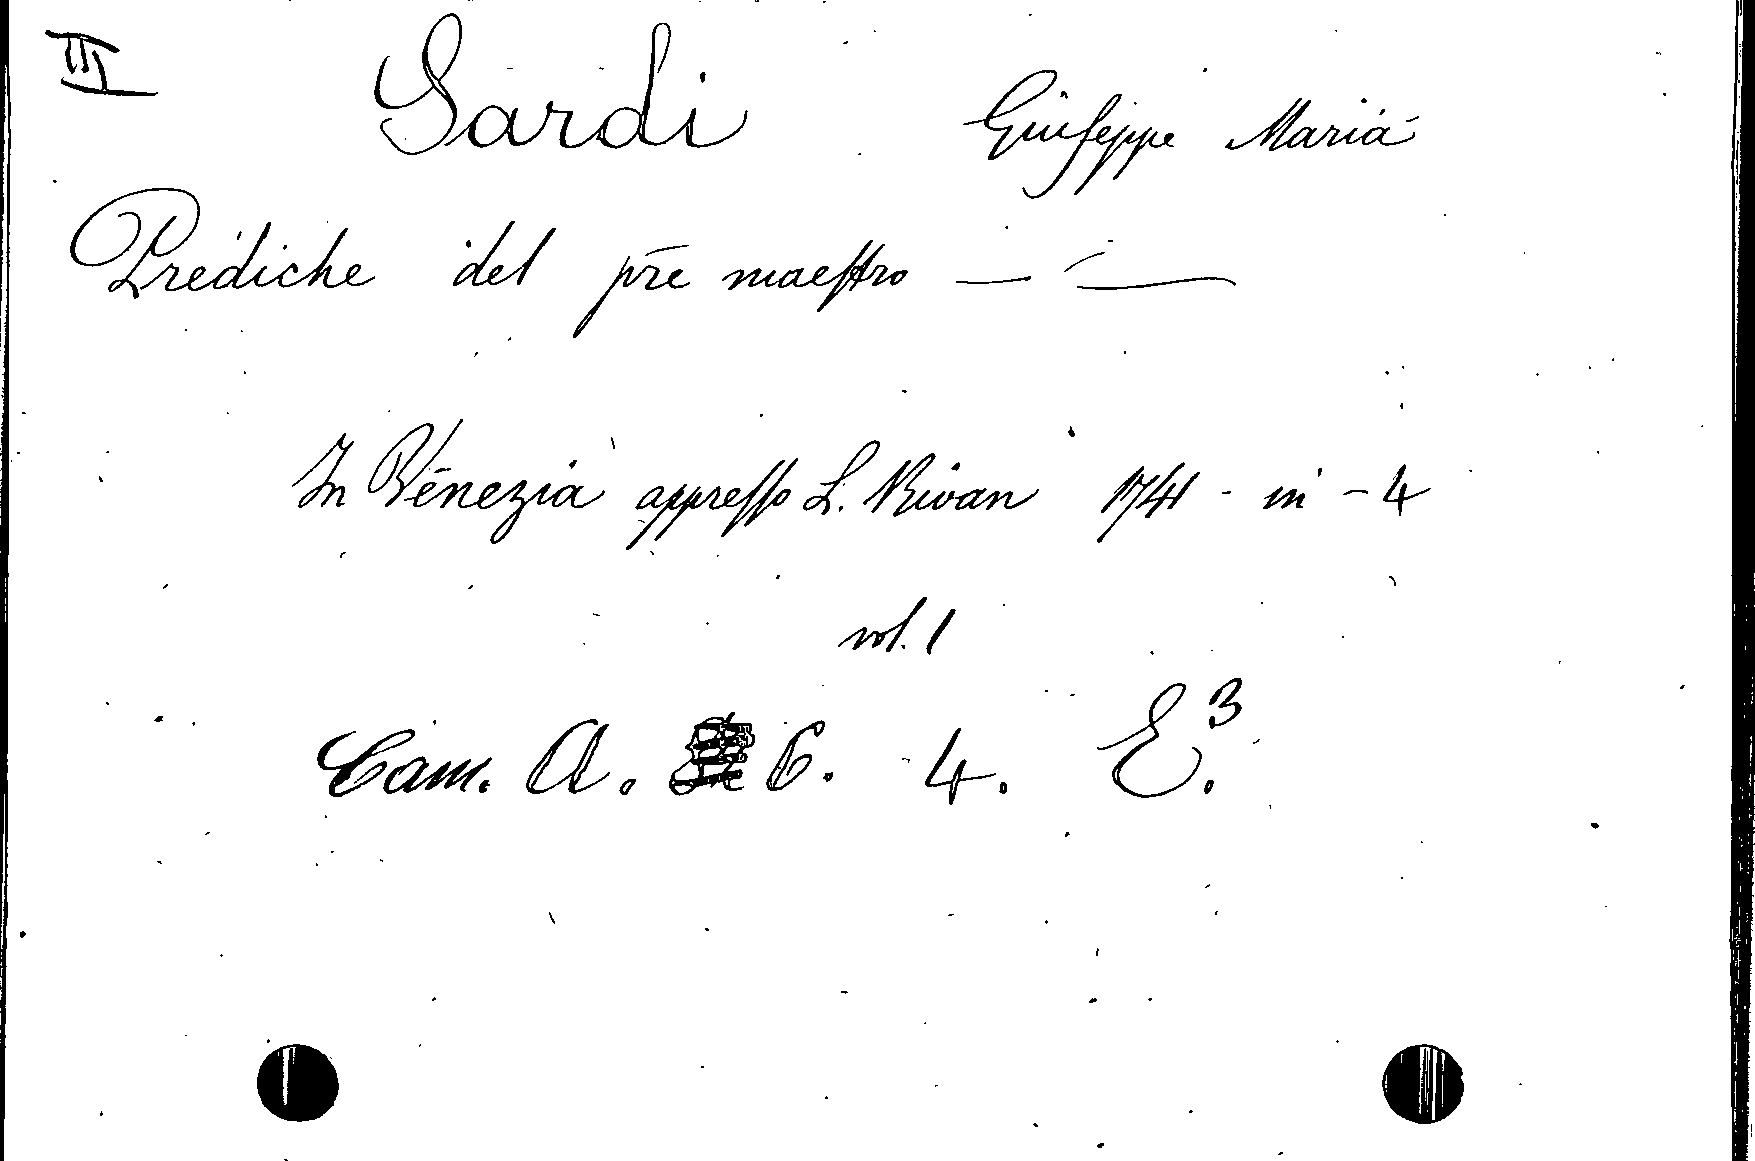 III Sardi Giuseppe Maria
Prediche del pre maestro — —
In Venezia appresso L. Rivan 1741 - in - 4
vol. 1
Cam. A. 6. 4. E.³